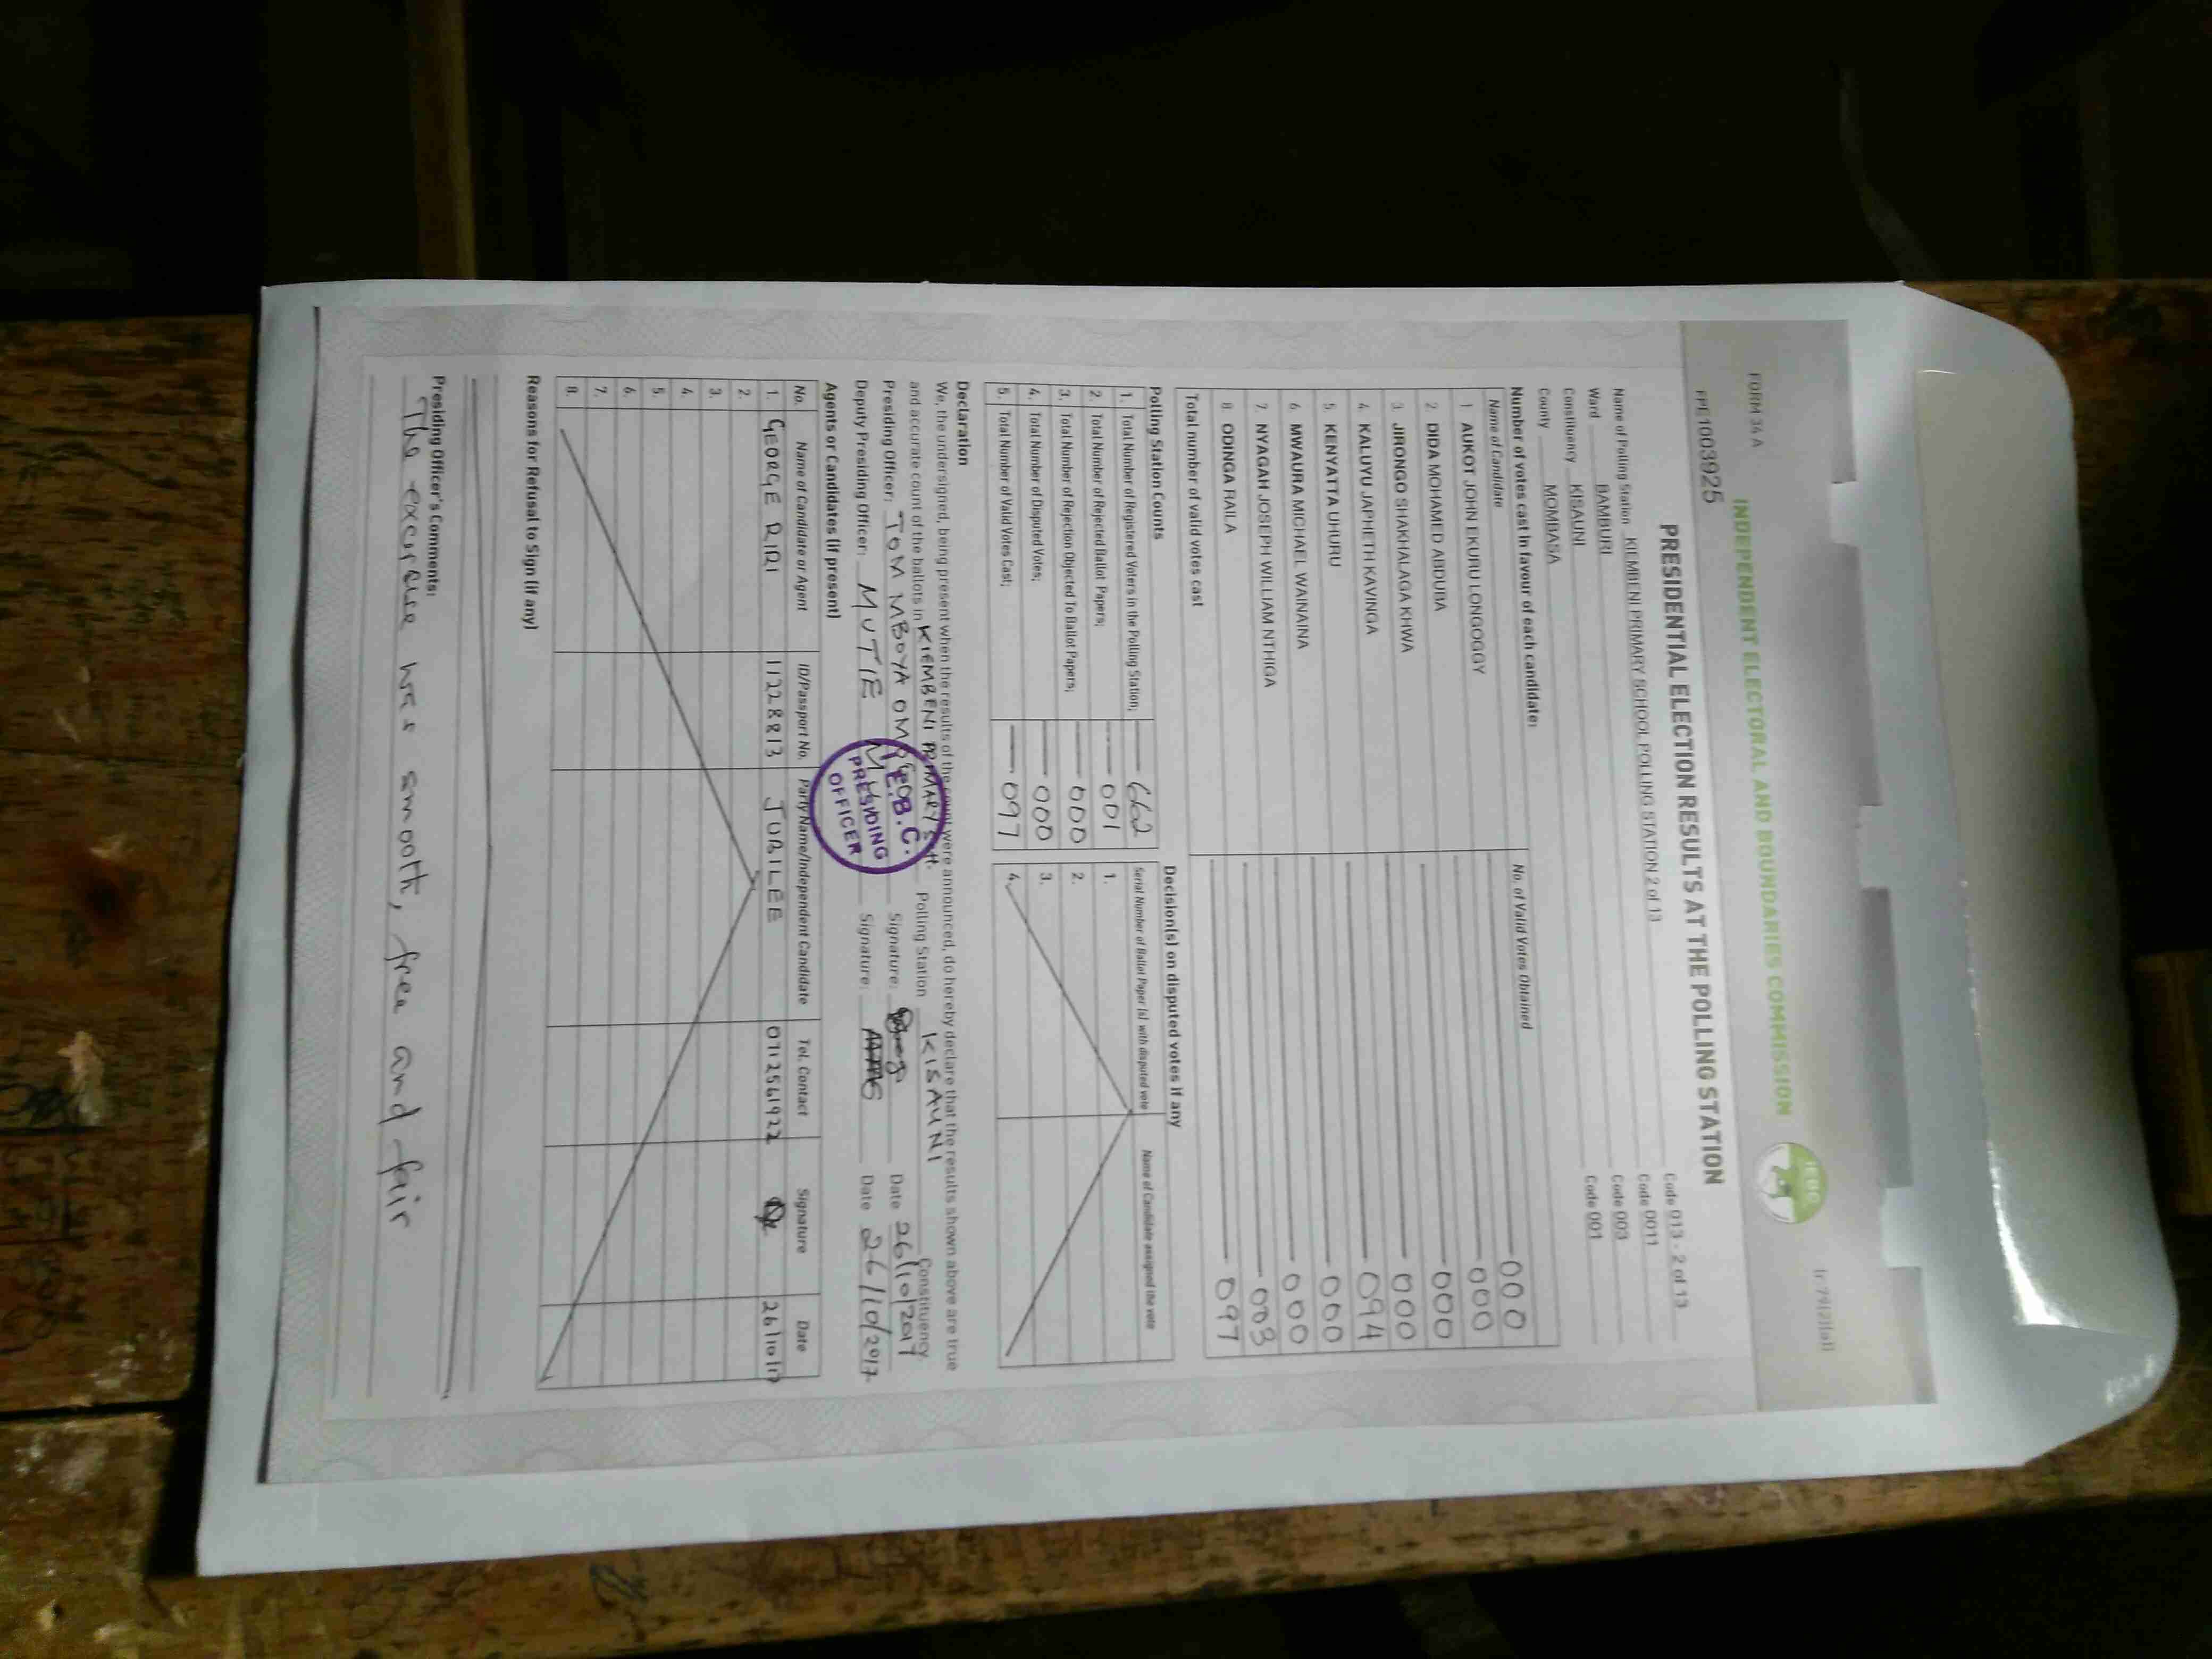 FORM 34 A
INDEPENDENT ELECTORAL AND BOUNDARIES COMMISSION
IEBC
PPE 1003925
PRESIDENTIAL ELECTION RESULTS AT THE POLLING STATION
Name of Polling Station KIEMBENI PRIMARY SCHOOL POLLING STATION 2 of 13 Code 013 - 2 of 13
Ward BAMBURI Code 0011
Constituency KISAUNI Code 003
County MOMBASA Code 001
Number of votes cast in favour of each candidate:
Name of Candidate No. of Valid Votes Obtained
1 AUKOT JOHN EKURU LONGOGGY 000
2. DIDA MOHAMED ABDUBA 000
3. JIRONGO SHAKHALAGA KHWA 000
4. KALUYU JAPHETH KAVINGA 000
5. KENYATTA UHURU 094
6 MWAURA MICHAEL WAINAINA 000
7. NYAGAH JOSEPH WILLIAM NTHIGA 000
8. ODINGA RAILA 003
Total number of valid votes cast 097
Polling Station Counts
1. Total Number of Registered Voters in the Polling Station; 662
2. Total Number of Rejected Ballot Papers; 001
3. Total Number of Rejection Objected To Ballot Papers; 000
4. Total Number of Disputed Votes; 000
5. Total Number of Valid Votes Cast; 097
Decision(s) on disputed votes if any
Serial Number of Ballot Paper (s) with disputed vote Name of Candidate assigned the vote
1.
2.
3.
4.
Declaration
We, the undersigned, being present when the results of the count were announced, do hereby declare that the results shown above are true
and accurate count of the ballots in KIEMBENI PRIMARY SCH. Polling Station KISAUNI Constituency
Presiding Officer: TOM MBOYA Signature: Date 26/10/2017
Deputy Presiding Officer: MUTIE Signature: Date 26/10/2017
I.E.B.C.
PRESIDING
OFFICER
Agents or Candidates (if present)
No. Name of Candidate or Agent ID/Passport No. Party Name/Independent Candidate Tel. Contact Signature Date
1. GEORGE RIRI 11228813 JUBILEE 0712561922 26/10/17
2.
3.
4.
5.
6.
7.
8.
Reasons for Refusal to Sign (if any)
Presiding Officer's Comments:
The exercise was smooth, free and fair